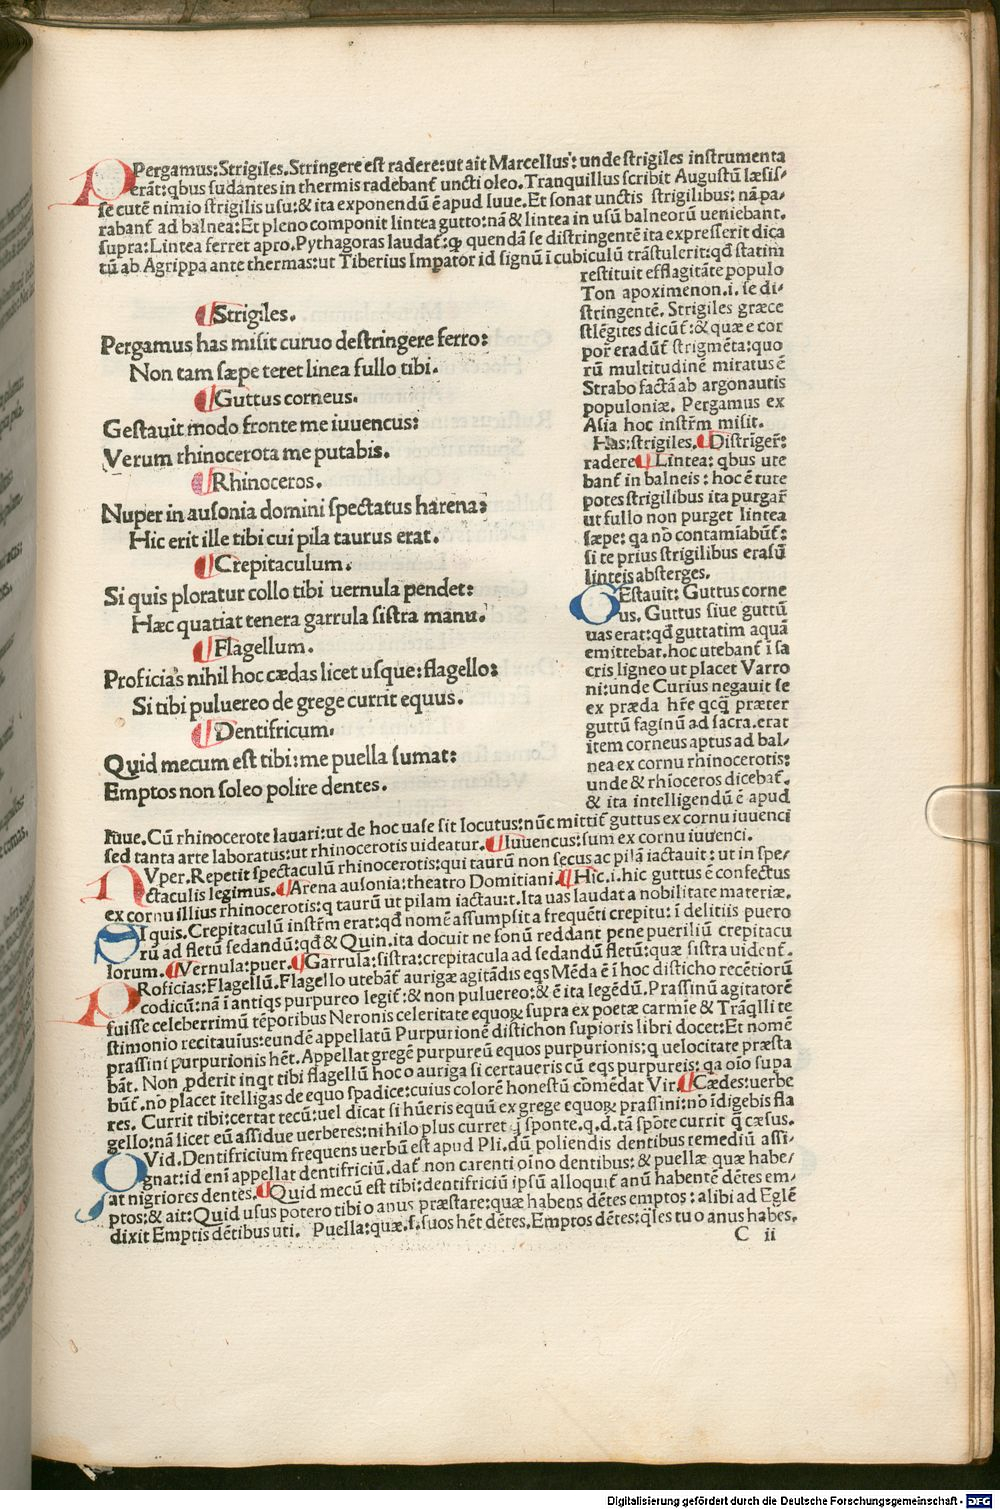 PPergamus:Strigiles.Stringere est radere:ut ait Marcellus: unde strigiles instrumenta
erãt:qbus sudantes in thermis radebant̃ uncti oleo.Tranquillus scribit Augustũ læsis/
se cutẽ nimio strigilis usu:& ita exponendũ ẽ apud Iuue.Et sonat unctis strigilibus: nã pa/
rabant̃ ad balnea:Et pleno componit lintea gutto:nã & lintea in usũ balneorũ ueniebant.
supra:Lintea ferret apro.Pythagoras laudat̃:ꝙ quendã se distringentẽ ita expresserit dica
tũ ab Agrippa ante thermas:ut Tiberius Impator id signũ ĩ cubiculũ trãstulerit:qđ statim
restituit efflagitãte populo
Ton apoximenon.i. se di/
stringentẽ. Strigiles græce
stlẽgites dicũt̃:& quæ e cor
por̃ eradũt̃ strigmẽta:quo
rũ multitudinẽ miratus ẽ
Strabo factã ab argonautis
populoniæ. Pergamus ex
Asia hoc instr̃m misit.
Has:strigiles. ¶Distrĩger̃:
radere ¶Lintea: qbus ute
bant̃ in balneis: hoc ẽ tute
potes strigilibus ita purgar̃
ut fullo non purget lintea
sæpe: qa nõ contamĩabũt̃:
si te prius strigilibus erasũ
linteis absterges.
GEstauit: Guttus corne
us. Guttus siue guttũ
uas erat:qđ guttatim aquã
emittebat.hoc utebant̃ ĩ sa
cris ligneo ut placet Varro
ni:unde Curius negauit se
ex præda hr̃e qcq̃ præter
guttũ faginũ ad sacra.erat
item corneus aptus ad bal/
nea ex cornu rhinocerotis:
unde & rhĩoceros dicebat̃.
& ita intelligendũ ẽ apud
¶Strigiles.
Pergamus has misit curuo destringere ferro:
Non tam sæpe teret linea fullo tibi.
¶Guttus corneus.
Gestauit modo fronte me iuuencus:
Verum rhinocerota me putabis.
¶Rhinoceros.
Nuper in ausonia domini spectatus harena:
Hic erit ille tibi cui pila taurus erat.
¶Crepitaculum.
Si quis ploratur collo tibi uernula pendet:
Hæc quatiat tenera garrula sistra manu.
¶Flagellum.
Proficias nihil hoc cædas licet usque:flagello:
Si tibi puluereo de grege currit equus.
¶Dentifricum.
Quid mecum est tibi:me puella sumat:
Emptos non soleo polire dentes.
Iuue.Cũ rhinocerote lauari:ut de hoc uase sit locutus:nũc mittit̃ guttus ex cornu iuuenci
sed tanta arte laboratus:ut rhinocerotis uideatur. ¶Iuuencus:sum ex cornu iuuenci.
NVper.Repetit spectaculũ rhinocerotis:qui taurũ non secus ac pilã iactauit: ut in spe/
ctaculis legimus. ¶Arena ausonia:theatro Domitiani. ¶Hic.i.hic guttus ẽ confectus
ex cornu illius rhinocerotis:q taurũ ut pilam iactauit.Ita uas laudat a nobilitate materiæ.
SI quis.Crepitaculũ instr̃m erat:qđ nomẽ assumpsit a frequẽti crepitu: ĩ delitiis puero
rũ ad fletũ sedandũ:qđ & Quin.ita docuit ne sonũ reddant pene pueriliũ crepitacu
lorum. ¶Vernula:puer. ¶Garrula:sistra:crepitacula ad sedandũ fletũ:quæ sistra uident̃.
PRoficias:Flagellũ.Flagello utebãt̃ aurigæ agitãdis eqs Mẽda ẽ ĩ hoc disticho recẽtiorũ
codicũ:nã ĩ antiqs purpureo legit̃:& non puluereo:& ẽ ita legẽdũ.Prassinũ agitatorẽ
fuisse celeberrimũ tẽporibus Neronis celeritate equoꝝ supra ex poetæ carmie & Trãqlli te
stimonio recitauius:eundẽ appellatũ Purpurionẽ distichon supioris libri docet:Et nomẽ
prassini purpurionis hẽt.Appellat gregẽ purpureũ equos purpurionis:q uelocitate præsta
bãt. Non pderit inqt tibi flagellũ hoc o auriga si certaueris cũ eqs purpureis: qa oĩo supa
bũt̃.nõ placet ĩtelligas de equo spadice:cuius colorẽ honestũ cõmẽdat Vir. ¶Cædes:uerbe
res. Currit tibi:certat tecũ:uel dicat si hũeris equũ ex grege equoꝝ prassini:nõ ĩdigebis fla
gello:nã licet eũ assidue uerberes:nihilo plus curret q̃ sponte.q.d.tã spõte currit q̃ cæsus.
QVid.Dentifricium frequens uerbũ est apud Pli.dũ poliendis dentibus remediũ assi/
gnat:id enĩ appellat dentifriciũ.dat̃ non carenti oĩno dentibus:& puellæ quæ habe/
at nigriores dentes. ¶Quid mecũ est tibi:dentifriciũ ipsũ alloquit̃ anũ habentẽ dẽtes em/
ptos:& ait:Quid usus potero tibi o anus præstare:quæ habens dẽtes emptos: alibi ad Eglẽ
dixit Emptis dẽtibus uti. Puella:quæ.s.suos hẽt dẽtes.Emptos dẽtes:qles tu o anus habes.
C ii
Digitalisierung gefördert durch die Deutsche Forschungsgemeinschaft - DFG